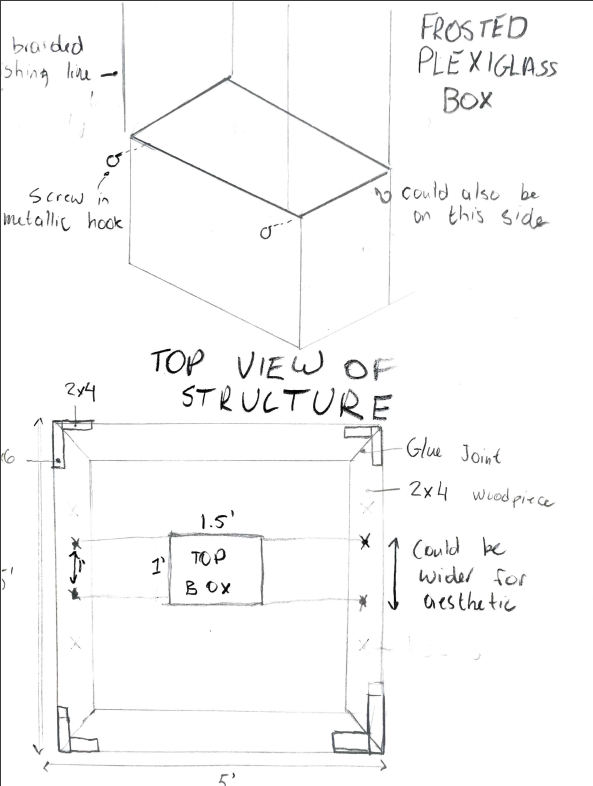 FROSTED
PLEXIGLASS
BOX
braided
shing line
screw in
metallic hook
could also be
on this side
TOP VIEW OF
STRUCTURE
2x4
Glue Joint
2x4 woodpiece
1.5'
1'
TOP
BOX
1'
Could be
wider for
aesthetic
5'
5'